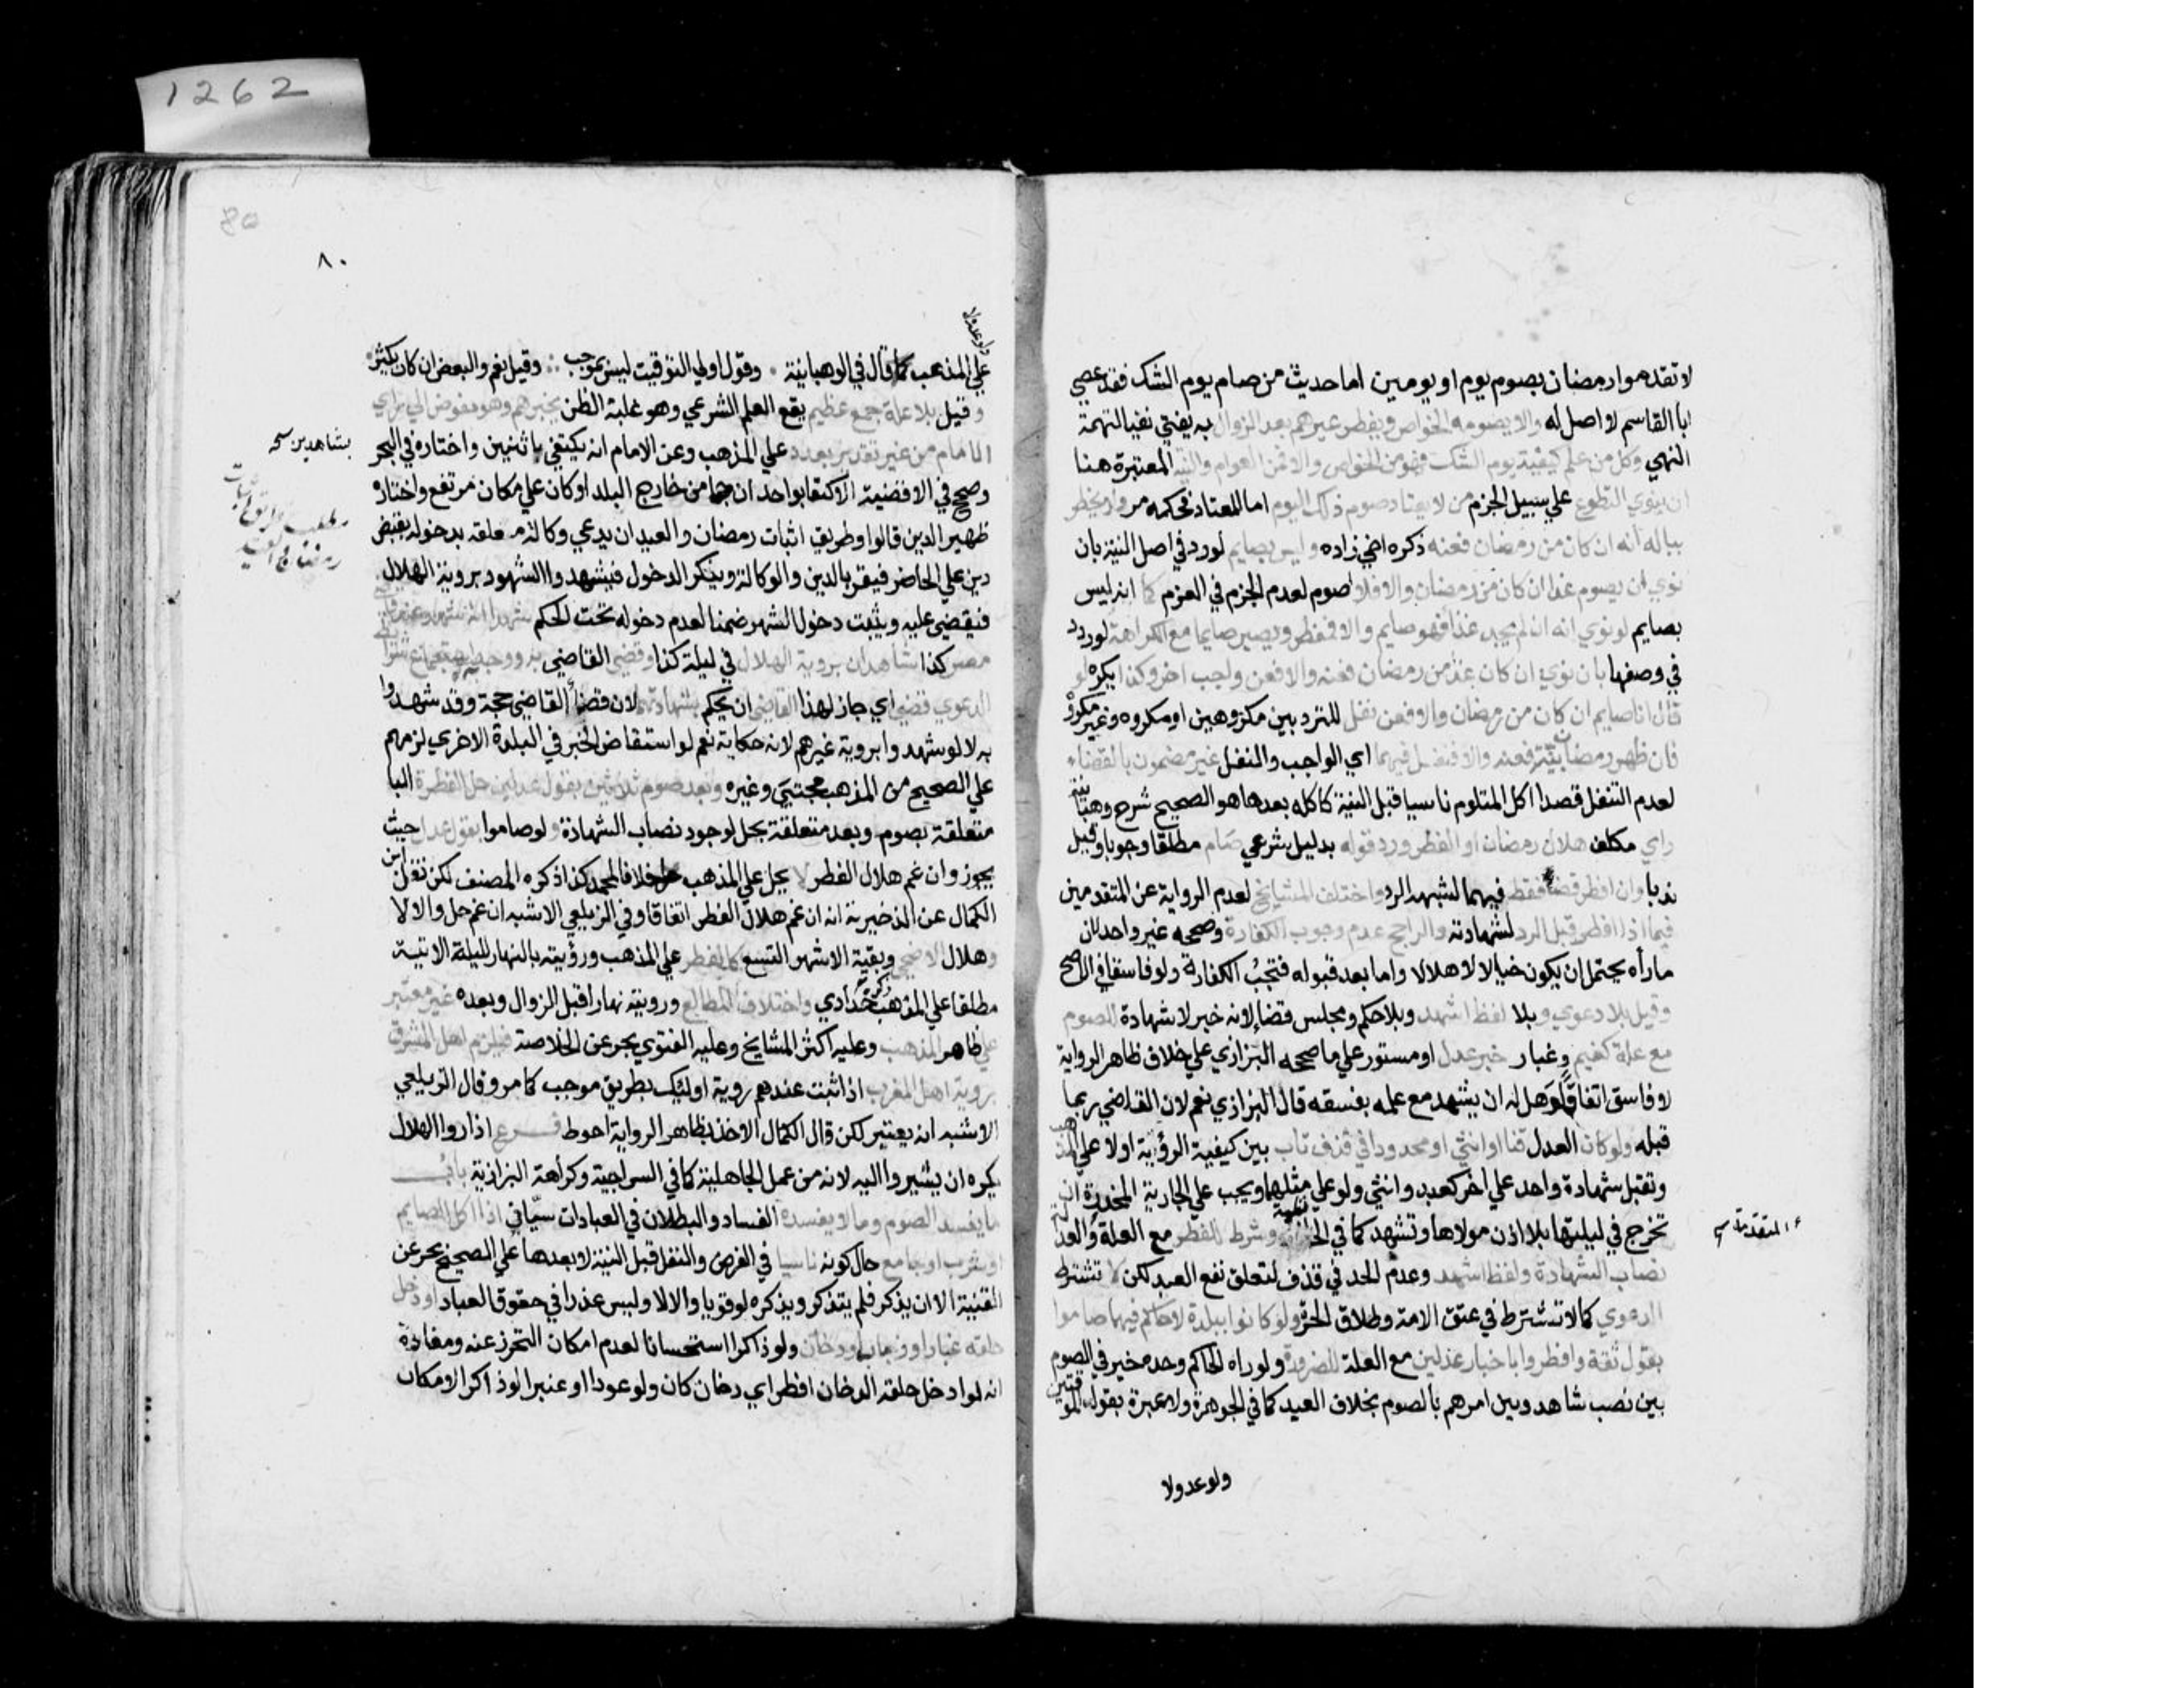 1262
لا تقدموا رمضان بصوم يوم او يومين اما حديث من صام يوم الشك فقد عصي
ابا القاسم لا اصل له والا يصومه الخواص ويفطر غيرهم بعد الزوال به يفتي نفيا لتهمة
النهي وكل من علم كيفية يوم الشك فهو من الخواص والا فمن العوام والنية المعتبرة هنا
ان ينوي التطوع علي سبيل الجزم من لا يعتاد صوم ذلك اليوم اما المعتاد فحكمه مر ولا يخطر
بباله انه ان كان من رمضان فعنه ذكره اخي زاده وليس بصايم لو ردد في اصل النية بان
نوي ان يصوم غدا ان كان من رمضان والا فلا اصوم لعدم الجزم في العزم كما انه ليس
بصايم لو نوي انه ان لم يجد غذا فهو صايم والا فمفطر ويصير صايما مع الكراهة لو ردد
في وصفها بان نوي ان كان غدا من رمضان فعنه والا فعن واجب اخر وكذا يكره لو
قال انا صايم ان كان من رمضان والا فعن نفل للتردد بين مكروهين او مكروه وغير مكروه
فان ظهر رمضانيته فعنه والا فنفل فيهما اي الواجب والنفل غير مضمون بالقضاء
لعدم التنفل قصدا اكل المتلوم ناسيا قبل النية كاكله بعدها هو الصحيح شرح وهبانية
راي مكلف هلال رمضان او الفطر ورد قوله بدليل شرعي صام مطلقا وجوبا وقيل
ندبا وان افطر قضا فقط فيهما لشبهة الرد واختلف المشايخ لعدم الرواية عن المتقدمين
فيما اذا افطر قبل الرد لشهادته والراجح عدم وجوب الكفارة وصححه غير واحد لان
ما رأه يحتمل ان يكون خيالا لا هلالا واما بعد قبوله فتجب الكفارة ولو فاسقا في الاصح
وقيل بلا دعوي وبلا لفظ اشهد وبلا حكم ومجلس قضا لانه خبر لا شهادة للصوم
مع علة كغيم وغبار خبر عدل او مستور علي ما صححه البزازي علي خلاف ظاهر الرواية
لا فاسق اتفاقا وهل له ان يشهد مع علمه بفسقه قال البزازي نعم لان القاضي ربما
قبله ولو كان العدل قنا او انثي او محدودا في قذف تاب بين كيفية الرؤية اولا علي المذهب
وتقبل شهادة واحد علي اخر كعبد وانثي ولو علي مثلهما ويجب علي الجارية المخدرة ان
تخرج في ليلتها بلا اذن مولاها وتشهد كما في الحافظية وشرط للفطر مع العلة والعدالة
المتقدمة
نصاب الشهادة ولفظ اشهد وعدم الحد في قذف لتعلق نفع العبد لكن لا تشترط
الدعوي كما لا تشترط في عتق الامة وطلاق الحرة ولو كانوا ببلدة لا حاكم فيها صاموا
بقول ثقة وافطروا باخبار عدلين مع العلة للضرورة ولو راه الحاكم وحده خير في الصوم
بين نصب شاهد وبين امرهم بالصوم بخلاف العيد كما في الجوهرة ولا عبرة بقول الموقتين
ولو عدولا
٨٠
ولو عدولا
علي المذهب كما قال في الوهبانية وقول اولي التوقيت ليس بموجب وقيل نعم والبعض ان كان يكثر
وقيل بلا علة جمع عظيم يقع العلم الشرعي وهو غلبة الظن بخبرهم وهو مفوض الي راي
الامام من غير تقدير بعدد علي المذهب وعن الامام انه يكتفي باثنين واختاره في البحر
بشاهدين
وصحح في الاقضية الاكتفا بواحد ان جا من خارج البلد او كان علي مكان مرتفع واختاره
ظهير الدين قالوا وطريق اثبات رمضان والعيد ان يدعي وكالة معلقة بدخوله بقبض
دين علي الحاضر فيقر بالدين والوكالة وينكر الدخول فيشهد والشهود بروية الهلال
فيقضي عليه ويثبت دخول الشهر ضمنا لعدم دخوله تحت الحكم شهدا انه شهد عند قاضي
مصر كذا شاهدان بروية الهلال في ليلة كذا وقضي القاضي به ووجد استجماع شرائط
الدعوي قضي اي جاز لهذا القاضي ان يحكم بشهادتهما لان قضأ القاضي حجة وقد شهدوا
به لا لو شهدوا بروية غيرهم لانه حكاية نعم لو استفاض الخبر في البلدة الاخري لزمهم
علي الصحيح من المذهب مجتبي وغيره وبعد صوم ثلاثين بقول عدلين حل الفطر البا
متعلقة بصوم وبعد متعلقة بحل لوجود نصاب الشهادة ولو صاموا بقول عدل حيث
يجوز وان غم هلال الفطر لا يحل علي المذهب خلافا لمحمد كذا ذكره المصنف لكن نقل ابن
الكمال عن الذخيرية انه ان غم هلال الفطر اتفاقا وفي الزيلعي الاشبه ان غم حل والا لا
وهلال الاضحي وبقية الاشهر التسع كالفطر علي المذهب ورؤيته بالنهار لليلة الاتية
مطلقا علي المذهب ذكره حدادي واختلاف المطالع وروبته نهارا قبل الزوال وبعده غير معتبر
علي ظاهر المذهب وعليه اكثر المشايخ وعليه الفتوي بحر عن الخلاصة فيلزم اهل المشرق
بروية اهل المغرب اذا ثبت عندهم روية اوليك بطريق موجب كما مر وقال الزيلعي
الاشبه انه يعتبر لكن قال الكمال الاخذ بظاهر الرواية احوط فرع اذا راوا الهلال
يكره ان يشيروا اليه لانه من عمل الجاهلية كما في السراجية وكراهة البزازية باب
ما يفسد الصوم وما لا يفسده الفساد والبطلان في العبادات سيّاني اذا اكل الصايم
او شرب او جامع حال كونه ناسيا في الفرض والنفل قبل النية او بعدها علي الصحيح بحر عن
القنية الا ان يذكر فلم يتذكر ويذكره لو قويا والا لا وليس عذرا في حقوق العباد او دخل
حلقه غبار او ذباب او دخان ولو ذاكرا استحسانا لعدم امكان التحرز عنه ومفاده
انه لو ادخل حلقه الدخان افطر اي دخان كان ولو عودا او عنبرا لو ذاكرا لامكان